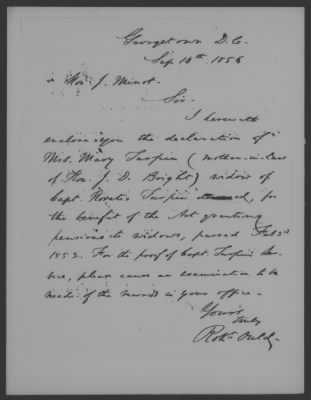 Georgetown D.C.
Sep 10th 1856
Hon. J. Minot.
Sir.
I herewith
enclose you the declaration of
Mrs. Mary Turpin (mother-in-law
of Hon. J. D. Bright) widow of
Capt. Horatio Turpin for
the benefit of the Act granting
pensions to widows, passed Feb 3d
1853. For the proof of Capt. Turpin's ser-
vice, please cause an examination to be
made of the records in your office.
Yours
truly
Robt. Ould.